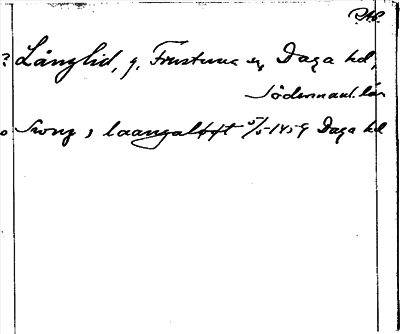 ? Långlid, g. Frustuna sn Daga hd,
Södermanl. län
laangal 5/5 1459 Daga hd